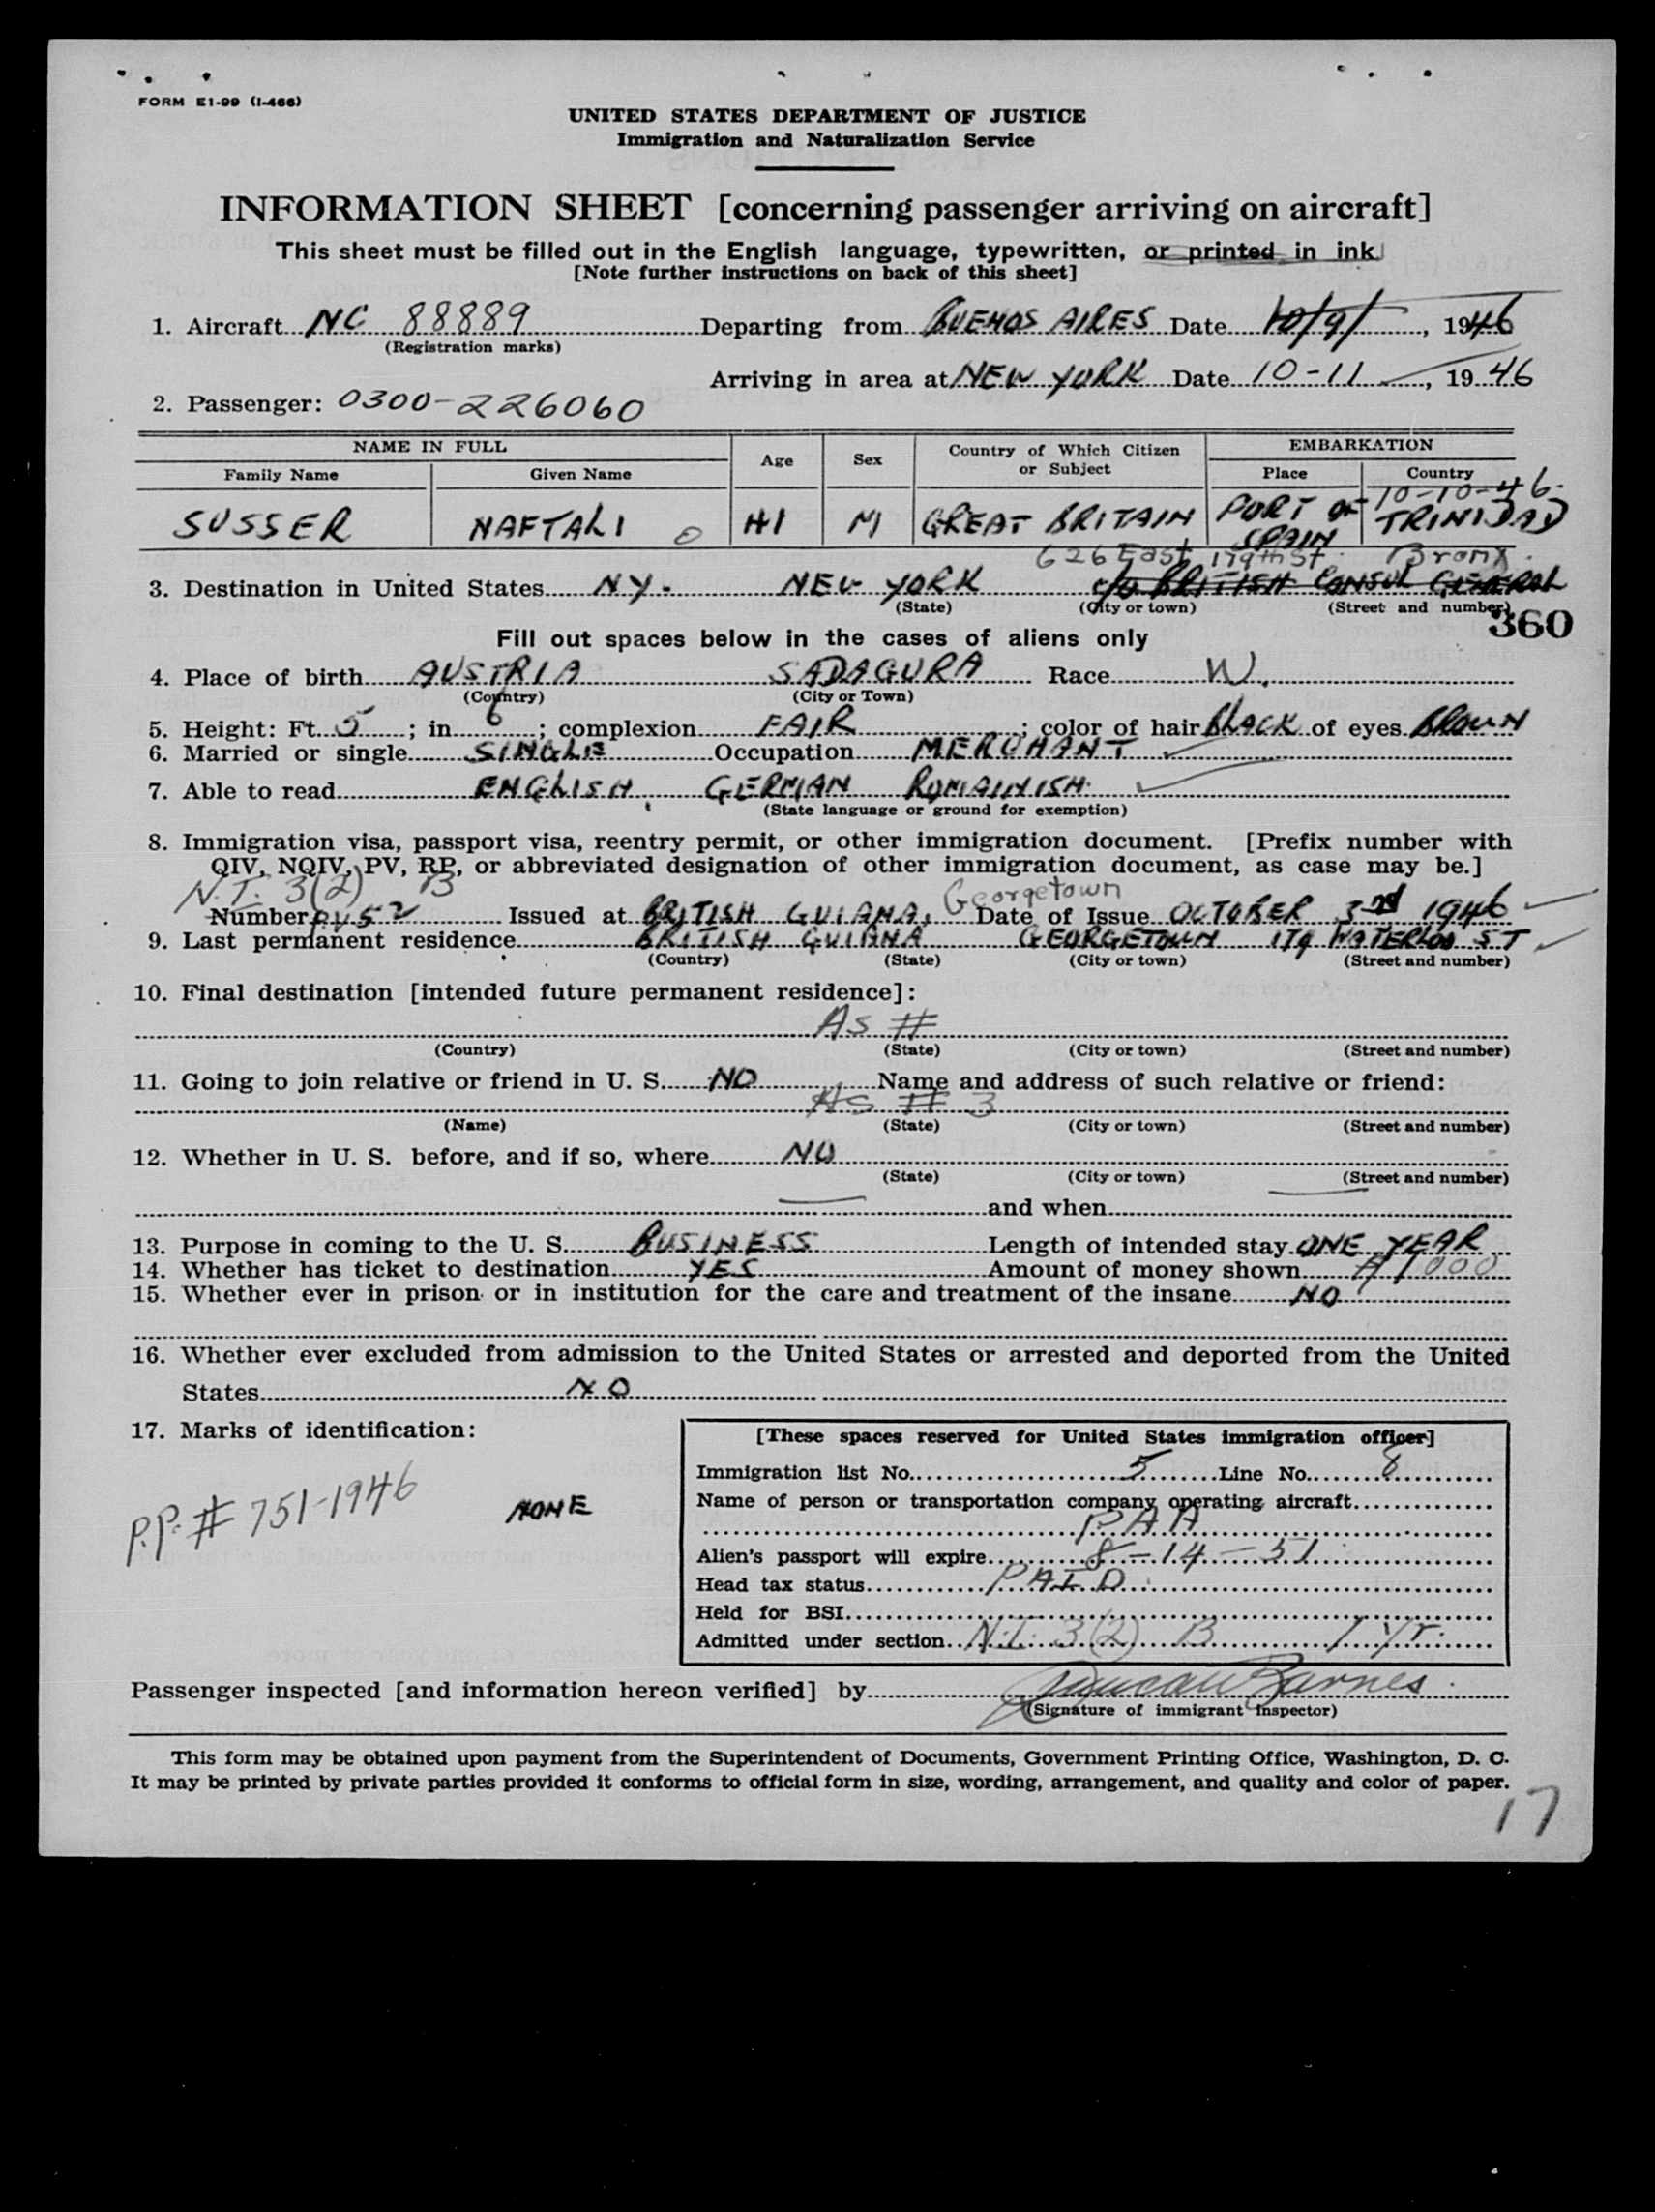 FORM E1-99 (I-466)
UNITED STATES DEPARTMENT OF JUSTICE
Immigration and Naturalization Service
INFORMATION SHEET [concerning passenger arriving on aircraft]
This sheet must be filled out in the English language, typewritten, or printed in ink
[Note further instructions on back of this sheet]
1. Aircraft NC 88889 Departing from BUENOS AIRES Date 10/9/, 1946
(Registration marks)
Arriving in area at NEW YORK Date 10-11, 1946
2. Passenger: 0300-226060
NAME IN FULL Age Sex Country of Which Citizen or Subject EMBARKATION
Family Name Given Name Place Country
10-10-46.
SUSSER NAFTALI 41 M GREAT BRITAIN PORT OF SPAIN TRINIDAD
626 East 179th St. Bronx.
3. Destination in United States N.Y. NEW YORK c/o BRITISH CONSUL GENERAL
(State) (City or town) (Street and number)
360
Fill out spaces below in the cases of aliens only
4. Place of birth AUSTRIA SADAGURA Race W.
(Country) (City or Town)
5. Height: Ft. 5; in 6; complexion FAIR; color of hair BLACK of eyes BROWN
6. Married or single SINGLE Occupation MERCHANT
7. Able to read ENGLISH, GERMAN ROMAINISH.
(State language or ground for exemption)
8. Immigration visa, passport visa, reentry permit, or other immigration document. [Prefix number with
QIV, NQIV, PV, RP, or abbreviated designation of other immigration document, as case may be.]
N.I. 3(2) B Georgetown
Number P.V. 52 Issued at BRITISH GUIANA, Date of Issue OCTOBER 3rd 1946
9. Last permanent residence BRITISH GUIANA GEORGETOWN 179 WATERLOO ST
(Country) (State) (City or town) (Street and number)
10. Final destination [intended future permanent residence]:
As #
(Country) (State) (City or town) (Street and number)
11. Going to join relative or friend in U. S. NO Name and address of such relative or friend:
As # 3
(Name) (State) (City or town) (Street and number)
12. Whether in U. S. before, and if so, where NO
(State) (City or town) (Street and number)
and when
13. Purpose in coming to the U. S. BUSINESS Length of intended stay ONE YEAR
14. Whether has ticket to destination YES Amount of money shown $1000
15. Whether ever in prison or in institution for the care and treatment of the insane NO
16. Whether ever excluded from admission to the United States or arrested and deported from the United
States NO
17. Marks of identification:
P.P. # 751-1946 NONE
[These spaces reserved for United States immigration officer]
Immigration list No. 5 Line No. 8
Name of person or transportation company operating aircraft
PAA
Alien's passport will expire 8-14-51
Head tax status PAID
Held for BSI
Admitted under section N.I. 3(2) B 1 yr.
Passenger inspected [and information hereon verified] by Duncan Barnes
(Signature of immigrant inspector)
This form may be obtained upon payment from the Superintendent of Documents, Government Printing Office, Washington, D. C.
It may be printed by private parties provided it conforms to official form in size, wording, arrangement, and quality and color of paper.
17